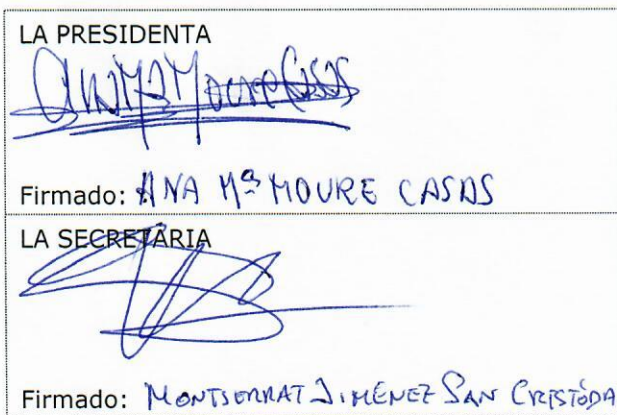 LA PRESIDENTA
Ana Mª Moure Casas
Firmado: ANA Mª MOURE CASAS
LA SECRETARIA
Firmado: MONTSERRAT JIMÉNEZ SAN CRISTÓBA